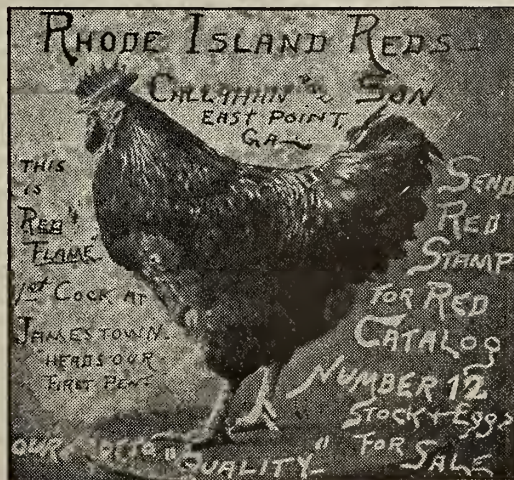 RHODE ISLAND REDS
CALLAHAN & SON
EAST POINT,
GA
THIS
IS
RED
FLAME"
1st COCK AT
JAMESTOWN.
HEADS OUR
FIRST PEN
SEND
RED
STAMP
FOR RED
CATALOG
NUMBER 12
STOCK & EGGS
FOR SALE
OUR MOTTO "QUALITY"